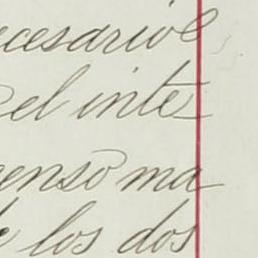 ecesario
el inte
enso ma
los dos